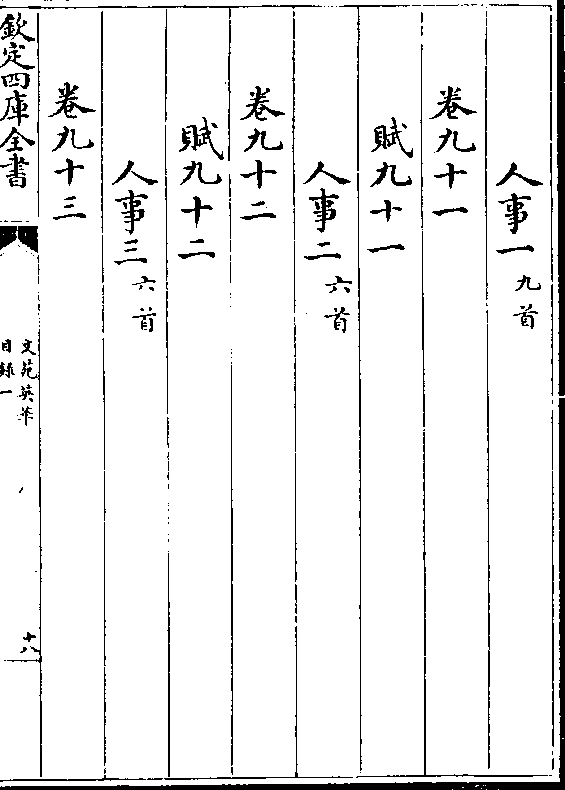 人事一九首
卷九十一
賦九十一
人事二六首
卷九十二
賦九十二
人事三六首
卷九十三
欽定四庫全書
文苑英華
目錄一
十八